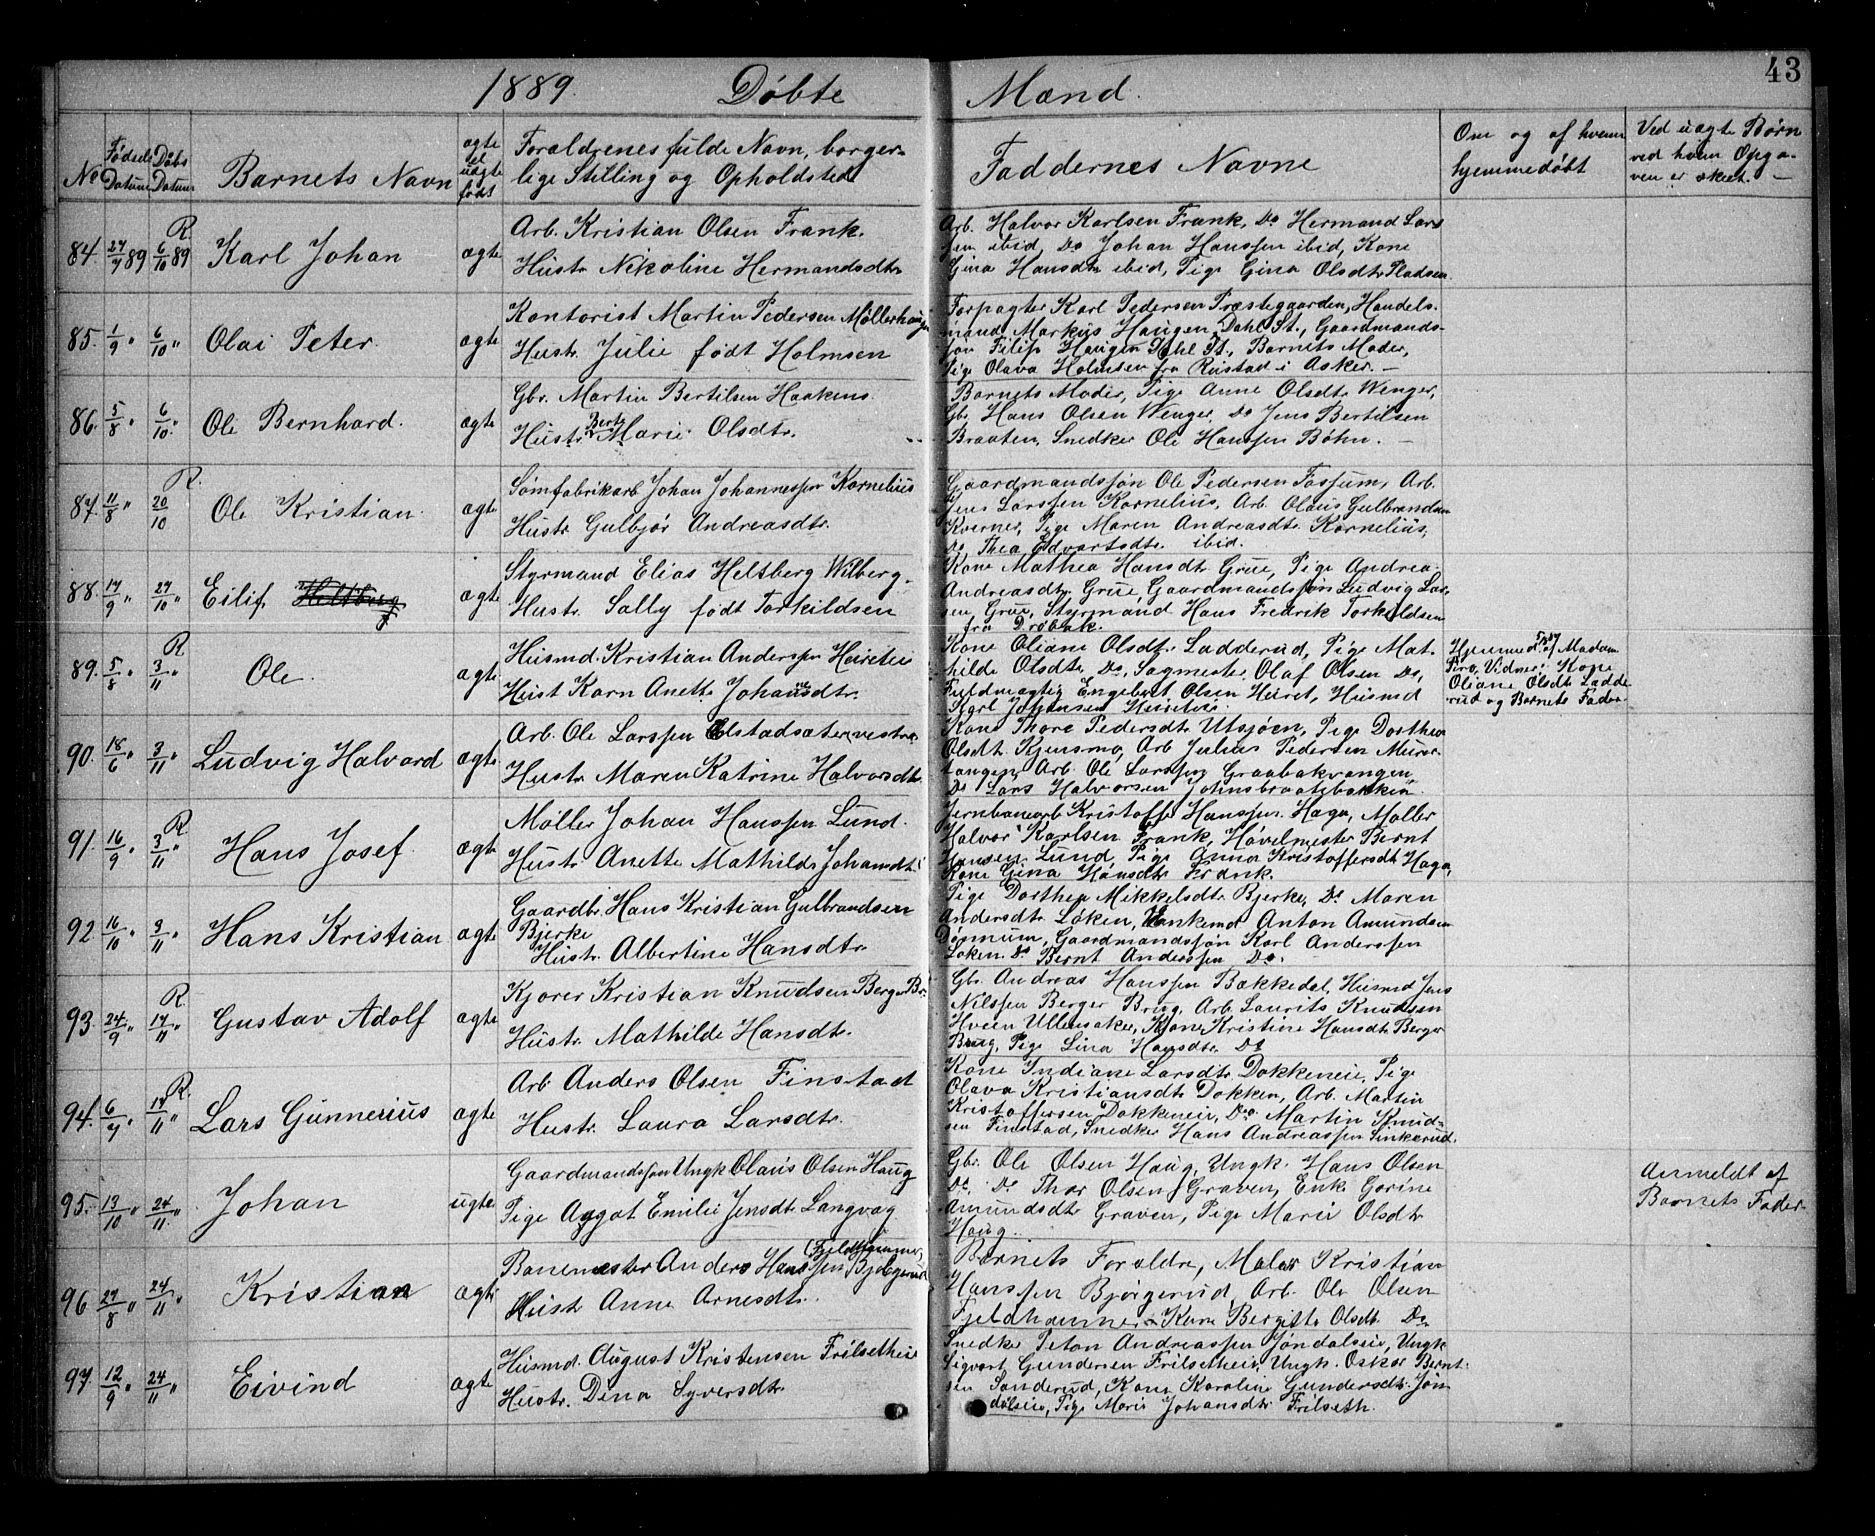 43
1889. Døbte Mænd.
No
Fødsels Datum
Døbs Datum
Barnets Navn
ægte el uægte født
Forældrenes fulde Navn, borger-
lige Stilling og Opholdsted
Faddernes Navne
Om og af hvem
hjemmedøbt
Ved uægte Børn
ved hvem Opga-
ven er skeet. —
R.
84. 27/7 89 6/10 89 Karl Johan ægte
Arb. Kristian Olsen Frank.
Hustr. Nikoline Hermandsdtr
Arb. Halvor Karlsen Frank, Do Hermand Lars
sen ibid, Do Johan Hanssen ibid, Kone
Gina Hansdtr ibid, Pige Gina Olsdtr Pladsen
85. 1/9 " 6/10 " Olai Peter. ægte
Kontorist Martin Pedersen Møllerhaugen
Hustr. Julie født Holmsen
Forpagter Karl Pedersen Præstegaarden, Handels-
mand Markus Haugen Dahl St., Gaardmands-
søn Filip Haugen Dahl St., Barnets Moder,
Pige Olava Holmsen fra Rustad i Asker. —
86. 5/8 " 6/10 " Ole Bernhard. ægte
Gbr. Martin Bertilsen Haakens
Hustr. Berte Marie Olsdtr.
Barnets Moder, Pige Anne Olsdtr Wenger,
Gbr. Hans Olsen Wenger, Do Jens Bertilsen
Braaten, Snedker Ole Hanssen Bøhn. —
R.
87. 11/8 " 20/10 Ole Kristian. ægte
Sømfabrikarb. Johan Johannessen Kornelius
Hustr Gulbjør Andreasdtr.
Gaardmandssøn Ole Pedersen Fossum, Arb.
Jens Larssen Kornelius, Arb. Olaus Gulbrandsen
Kværner, Pige Maren Andreasdtr. Kornelius,
Do Thea Edvartsdtr. ibid.
88. 17/9 " 27/10 " Eilif Heltberg ægte
Styrmand Elias Heltberg Wilberg.
Hustr. Sally født Torkildsen
Kone Mathea Hansdtr Grue, Pige Andrea
Andreasdtr. Grue, Gaardmandssøn Ludvig Lar-
sen Grue, Styrmand Hans Fredrik Torkildsen
fra Drøbak.
R
89. 5/8 " 3/11 " Ole. ægte
Husmd. Kristian Anderssen
Hust Karn Anette Johannesdtr.
Kone Oliane Olsdtr. Ladderud, Pige Mat-
hilde Olsdtr, Do, Sagmester Olaf Olsen Do,
Fuldmægtig Engebret Olsen Huret, Husmd
Karl Johansen
Hjemmed. 5/8 89 af Madam
Vidner: Kone
Oliane Olsdtr Ladde-
rud og Barnets Fader.
90. 18/6 " 3/11 " Ludvig Halvard ægte
Arb. Ole Larssen Olstadsæter, vestre
Hustr. Maren Katrine Halvorsdtr.
Kone Thore Pedersdtr Utsjøen, Pige Dorthea
Olsdtr Kjensmo, Arb Julius Pedersen Murer-
tangen, Arb. Ole Larssen Graabakvangen
Do Lars Halvorsen Johnsbraatebakken
R.
91. 16/9 " 3/11 " Hans Josef. ægte
Møller Johan Hanssen Lund.
Hustr. Anette Mathilde Johansdtr.
Jernbanearb Kristoffer Hanssen Haga, Møller
Halvor Karlsen Frank, Høvelmester Bernt
Hansen Lund, Pige Anna Kristoffersdtr Haga,
Kone Gina Hansdtr Frank.
92 16/10 " 3/11 " Hans Kristian ægte
Gaardbr. Hans Kristian Gulbrandsen
Bjerke
Hustr. Albertine Hansdtr.
Pige Dorthea Mikkelsdtr Bjerke, Do Maren
Andersdtr. Løken, Enkemd Anton Amundsen
Dømnum, Gaardmandssøn Karl Anderssen
Løken. Do Bernt Anderssen Do.
R.
93. 24/9 " 17/11 " Gustav Adolf ægte
Kjører Kristian Knudsen Berger Br.
Hustr. Mathilde Hansdtr.
Gbr. Andreas Hanssen Bækkedal, Husmd Jens
Nilssen Berger Brug, Arb. Laurits Knudsen
Hveen Ullensaker, Kone Kristine Hansdtr Berger
Brug, Pige Lina Hansdtr. Do
R.
94. 6/7 " 17/11 " Lars Gunnerius ægte
Arb Anders Olsen Finstad
Hustr. Laura Larsdtr.
Kone Indiane Larsdtr. Dokkeneie, Pige
Olava Kristiansdtr Dokken, Arb. Martin
Kristoffersen Dokkeneie, Do Martin Knud-
sen Finstad, Snedker Hans Andreassen Sinkerud.
95. 13/10 " 24/11 " Johan uægte
Gaardmandssøn Ungk Olaus Olsen Haug
Pige Aagot Emilie Jensdtr Langvag
Gbr. Ole Olsen Haug, Ungk. Hans Olsen
Do, Do Thor Olsen Graven, Enke Gorine
Amundsdtr Graven, Pige Marie Olsdtr
Haug.
Anmeldt af
Barnets Fader.
96 27/8 " 24/11 " Kristian ægte
(Fjeldhammer)
Banemester Anders Hanssen Bjørgerud
Hustr Anne Arnesdtr.
Barnets Forældre, Maler Kristian
Hanssen Bjørgerud, Arb. Ole Olsen
Fjeldhammer, Karn Bergitte Olsdtr Do
97. 12/9 " 24/11 " Eivind ægte
Husmd. August Kristensen Frilsetheie
Hustr. Dina Syversdtr.
Snedker Peton Andreassen Jøndalseie, Ungk
Sigvart Gundersen Frilsetheie, Ungk. Oskar Bernt-
sen Sanderud, Kone Karoline Gundersdtr. Jøn-
dalseie, Pige Marie Johansdtr Frilseth.